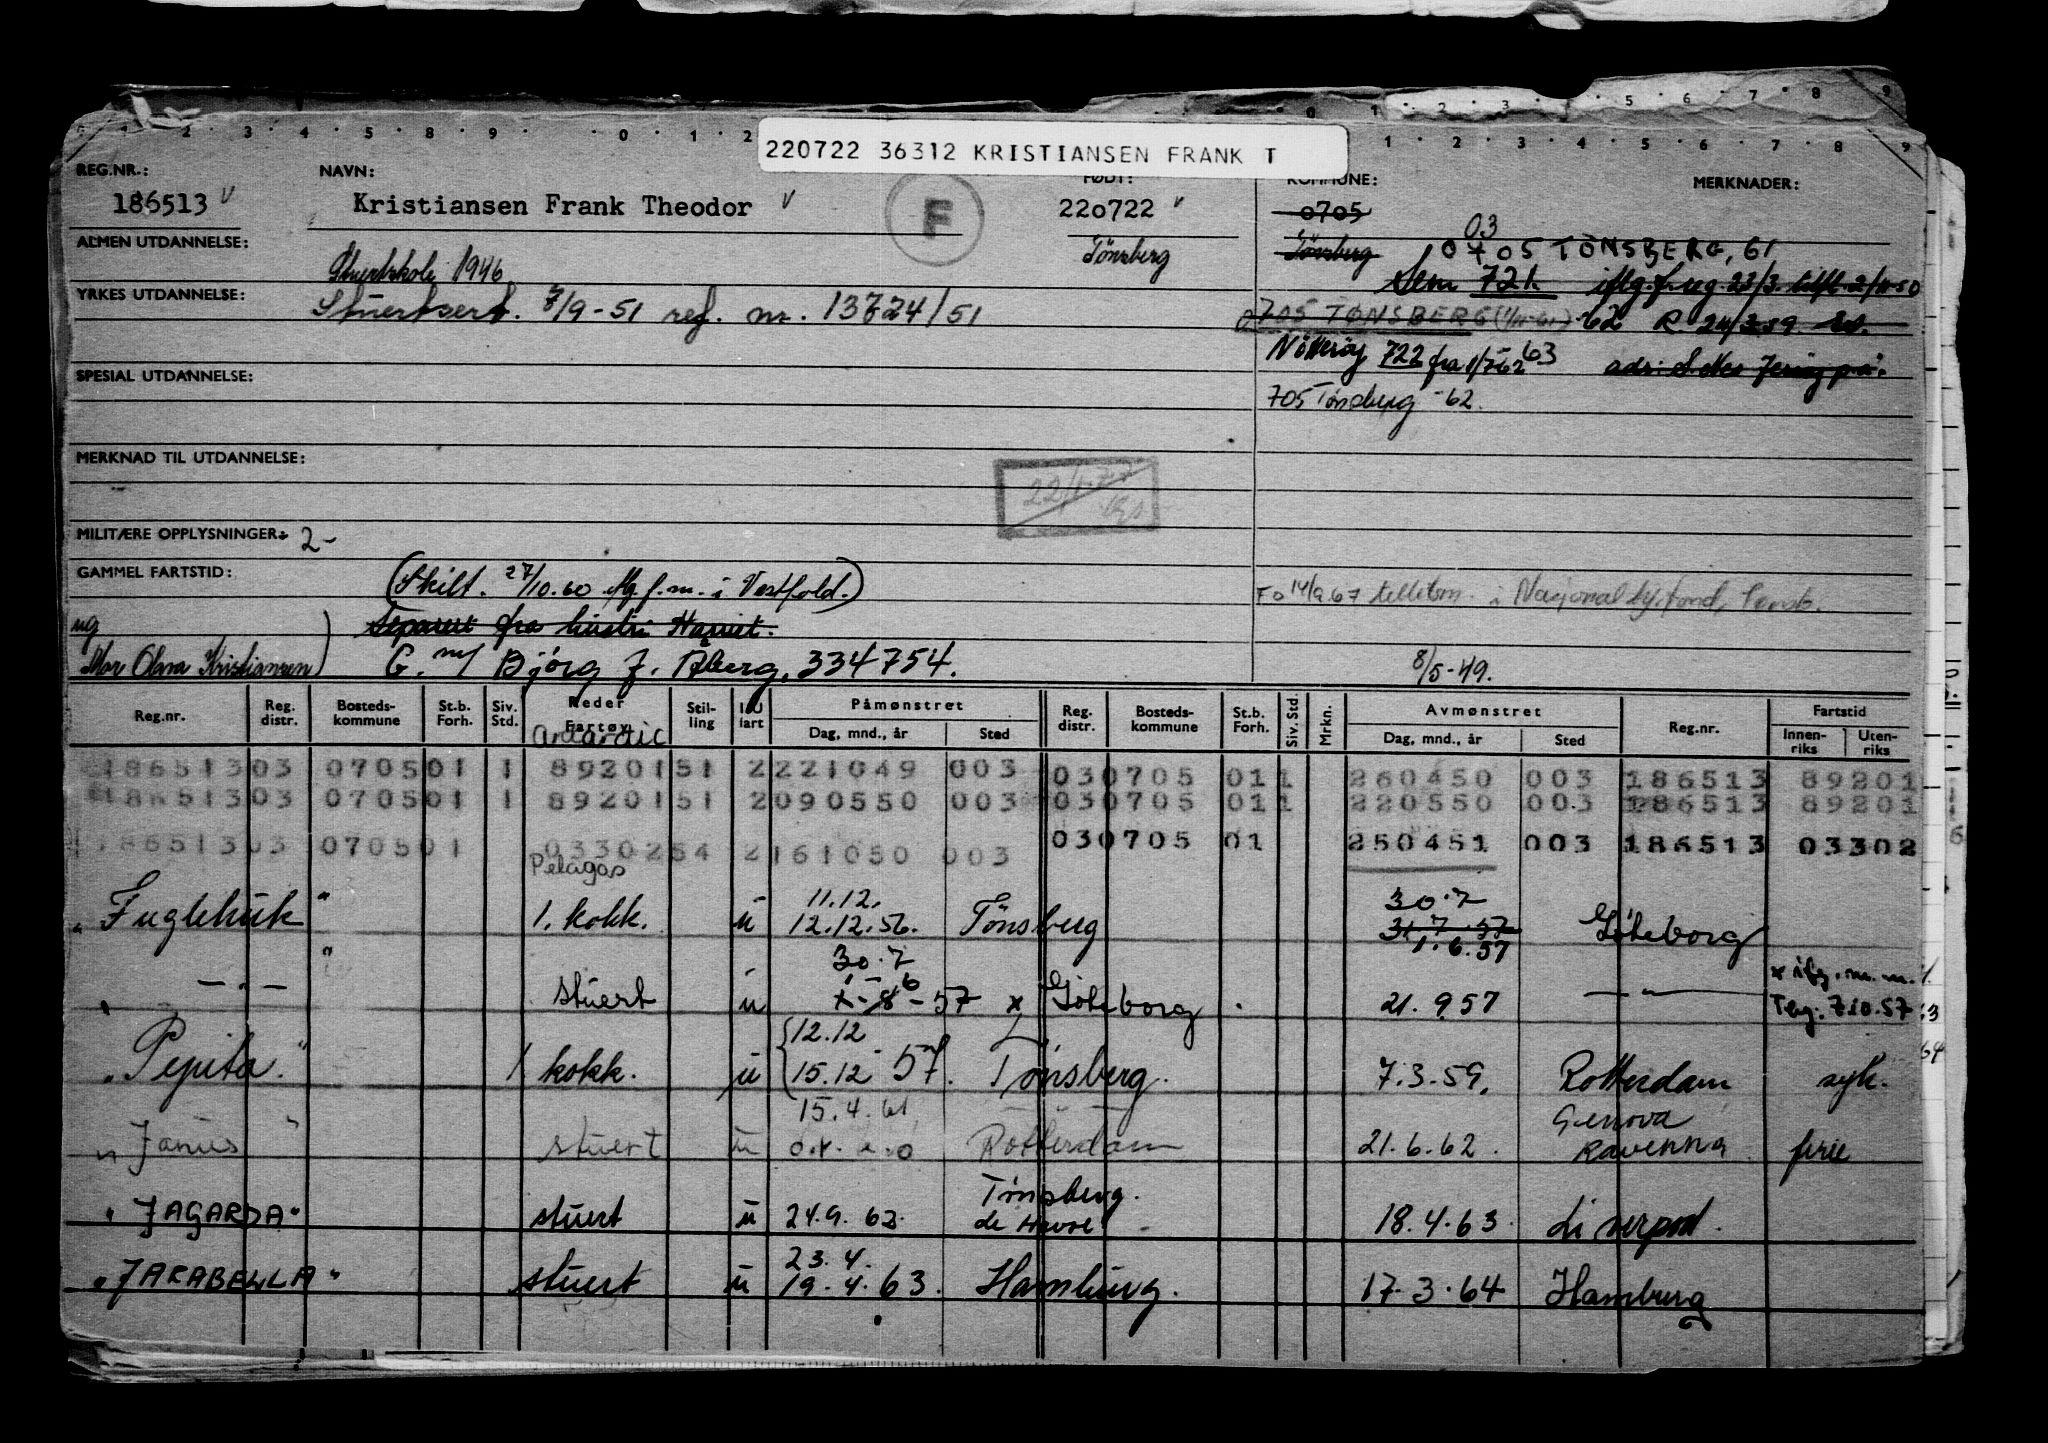 220722 36312 KRISTIANSEN FRANK T
REG.NR.: NAVN: FØDT: KOMMUNE: MERKNADER:
186513 Kristiansen Frank Theodor F 220722 0705
ALMEN UTDANNELSE: Tönsberg Tönsberg 03 0705 TÖNSBERG, 61
Stuertskole 1946 Sem 721.
YRKES UTDANNELSE: Stuertsert. 7/9-51 ref. nr. 13724/51
0705 TØNSBERG 62 R 24/3 59
Nötteröy 722 fra 1/7-62 63
SPESIAL UTDANNELSE:
705 Tönsberg -62.
MERKNAD TIL UTDANNELSE:
MILITÆRE OPPLYSNINGER: 2-
GAMMEL FARTSTID: (Skilt. 27/10.60 f.m. i Vestfold.)
Fo 14/9.67
ug Separert fra hustru Harriet.
Mor Olava Kristiansen) G. m/ Björg J. Åberg, 334754. 8/5-49.
Reg.nr. Reg. distr. Bosteds-kommune St.b. Forh. Siv. Std. Reder Fartøy Stil-ling fart Påmønstret Dag, mnd., år Sted Reg. distr. Bosteds-kommune St.b. Forh. Siv. Std. Mrkn. Avmønstret Dag, mnd., år Sted Reg.nr. Fartstid Innen-riks Uten-riks
Antarctic
186513 03 0705 01 1 89201 51 2 221049 003 03 0705 01 1 260450 003 186513 89201
186513 03 0705 01 1 89201 51 2 090550 003 03 0705 01 1 220550 003 186513 89201
186513 03 0705 01 03302 54 2 161050 003 03 0705 01 250451 003 186513 03302
Pelagos
11.12. 30.7
"Fuglehuk" 1. kokk. u 12.12.56. Tönsberg 31.7.57 Göteborg
1.6.57
30.7
" -"- " stuert u 1-8-57 x Göteborg. 21.9 57 -"- x ifg. m.m.
Tbg. 7.10.57
12.12
"Pepita" 1 kokk. u 15.12 57. Tönsberg. 7.3.59, Rotterdam syk.
15.4.61 Genova
"Janus" stuert u Rotterdam 21.6.62. Ravenna ferie
Tönsberg.
"JAGARDA" stuert u 24.9.62. le Havre 18.4.63. Liverpool.
23.4.
"JARABELLA" stuert u 19.4.63. Hamburg. 17.3.64 Hamburg